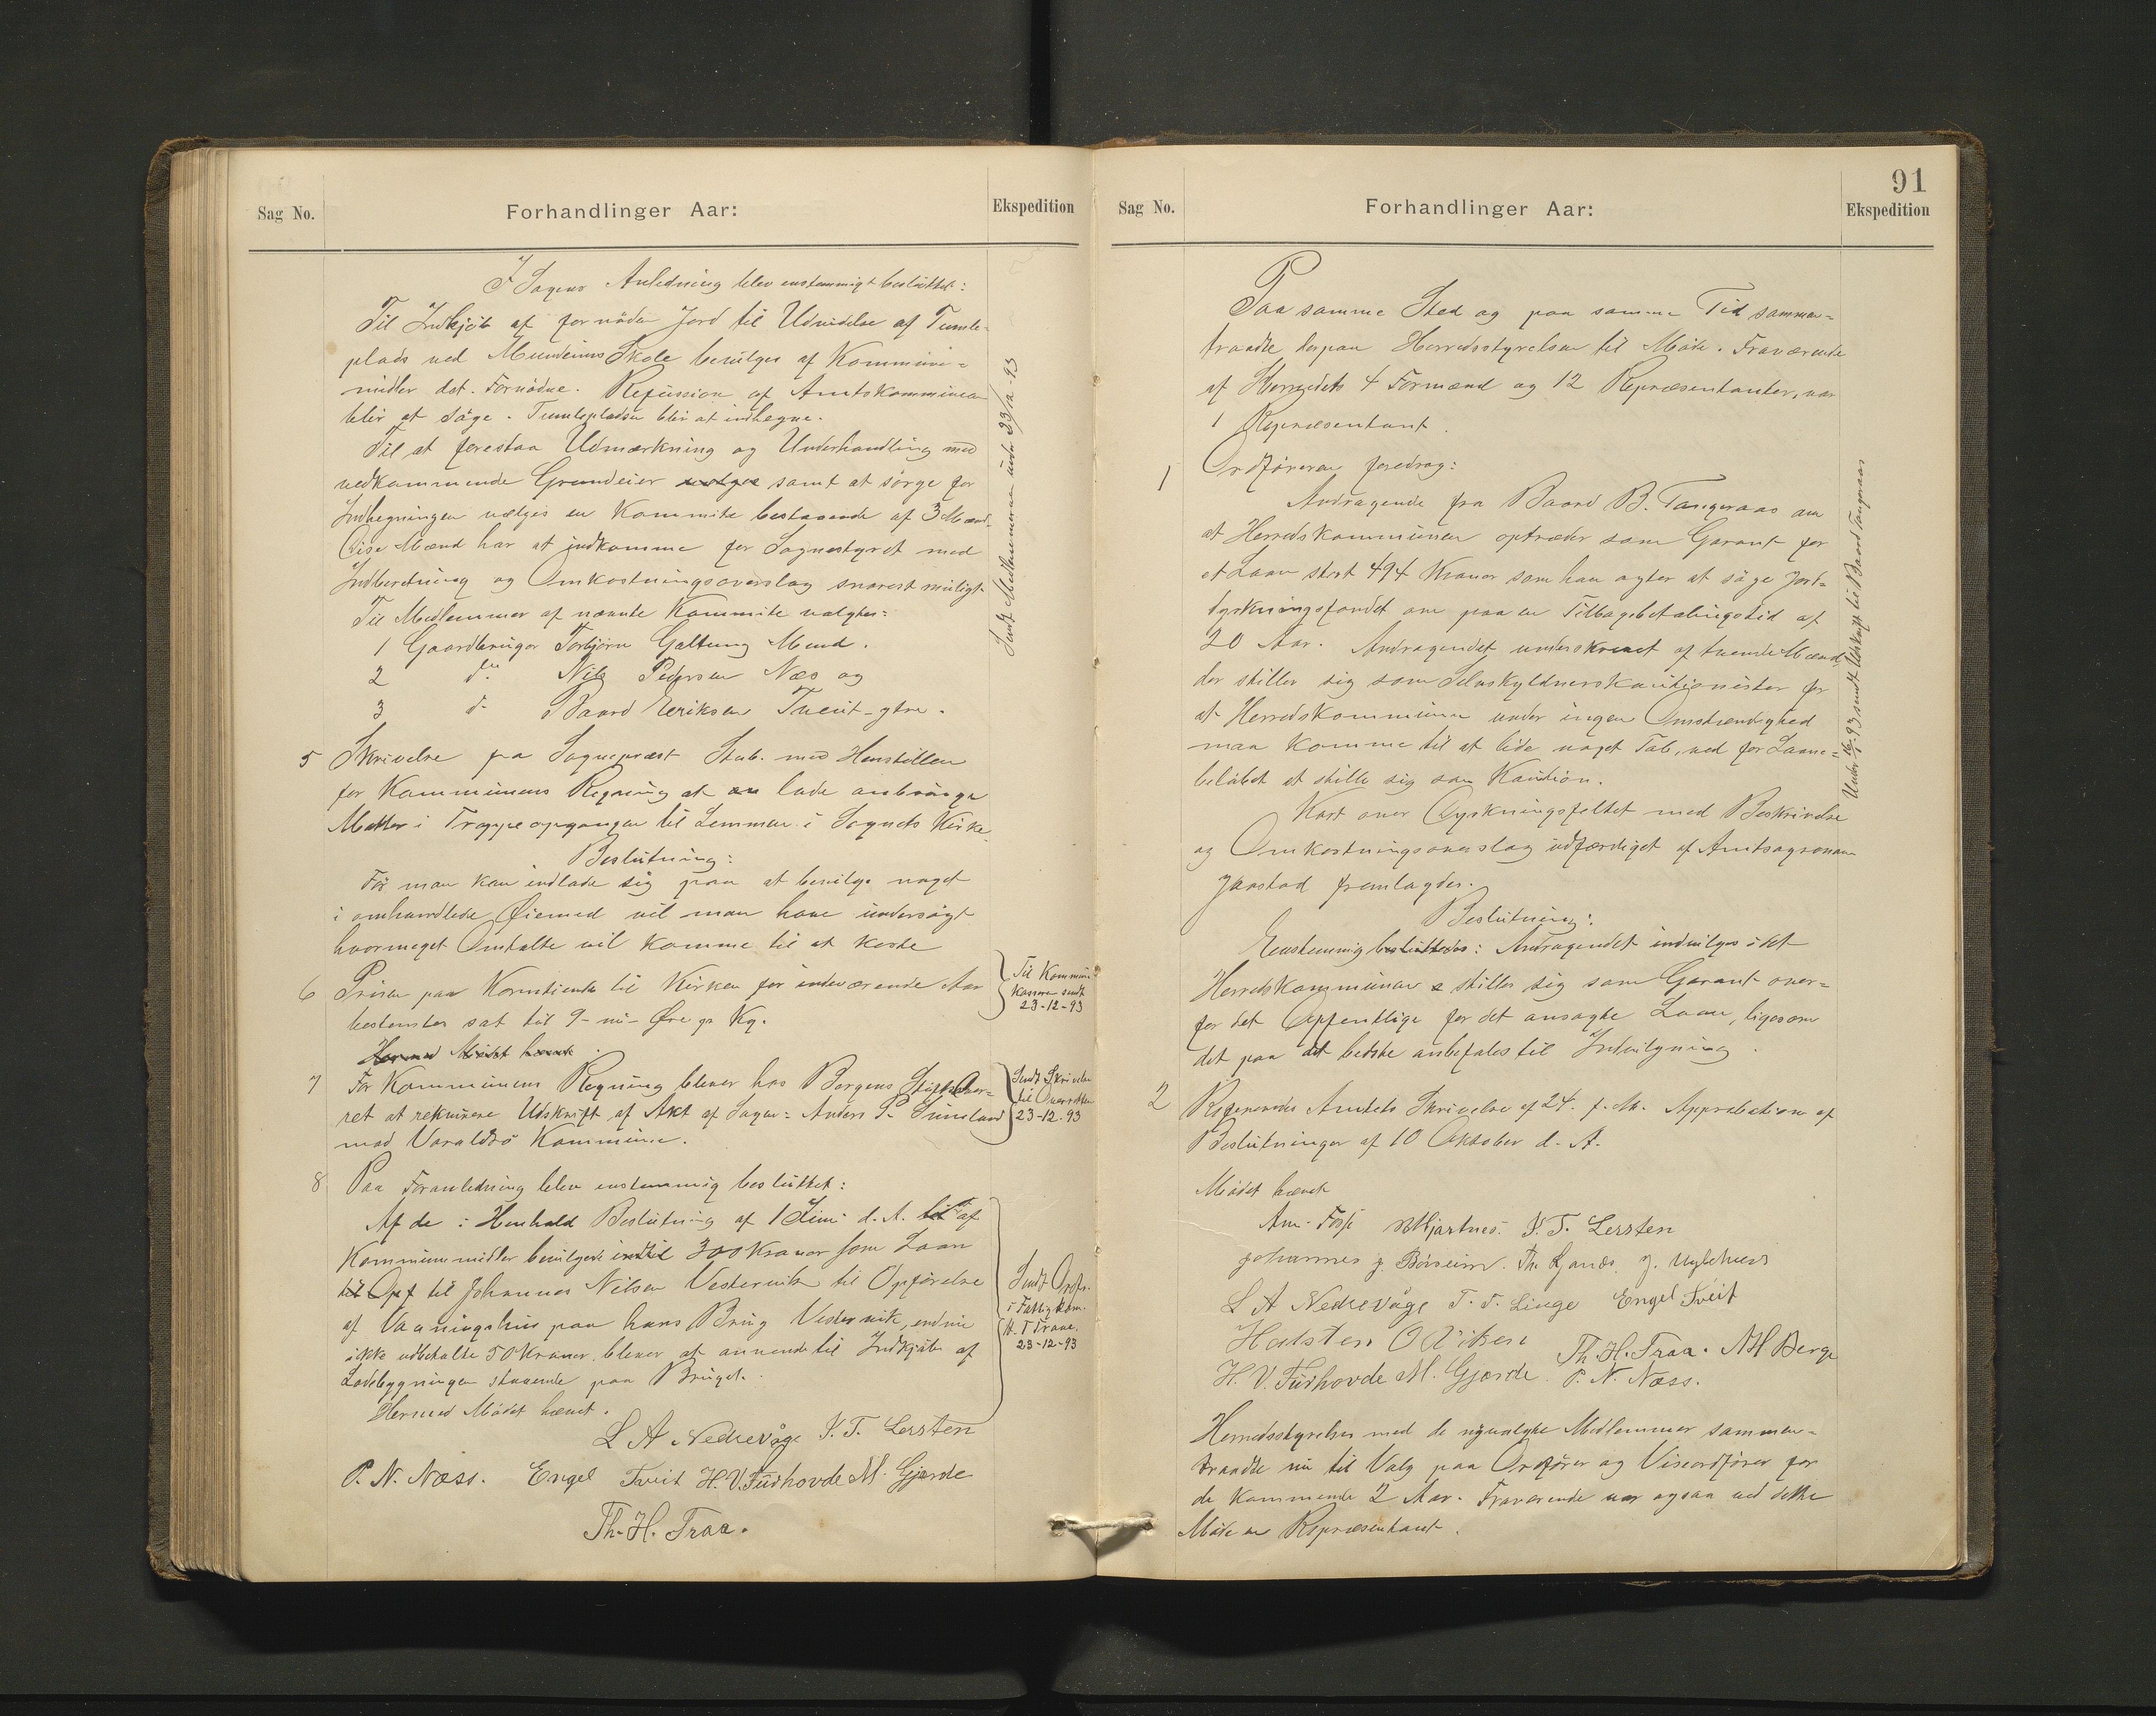 Sag No.
Forhandlinger Aar:
Ekspedition
I Sagens Anledning blev enstemmigt besluttet:
Til Indkjöb af fornöden Jord til Udvidelse af Tumle-
plads ved Mundeims Skole bevilges af Kommune-
midler det Fornödne. Refusion af Amtskommunen
blir at söge. Tumlepladsen blir at indhegne.
Til at forestaa Udmærkning og Underhandling med
vedkommende Grundeier vælges samt at sörge for
Indhegningen vælges en Kommite bestaaende af 3 Mænd.
Disse Mænd har at indkomme for Sognestyret med
Indberetning og Omkostningsoverslag snarest muligt.
Til Medlemmer af nævnte Kommite valgtes:
1 Gaardbruger Torbjörn Galtung Mund.
2 do Nils Pedersen Næs og
3 do Baard Eeriksen Tveit-ytre.
Sendt Medlemmerne under 23/12-93
5 Skrivelse fra Sogneprest Stub. med Henstillen
for Kommunens Regning at an lade anbringe
Matter i Trappeopgangen til Lemmen i Sognets Kirke.
Beslutning:
För man kan indlade sig paa at bevilge noget
i omhandlede Öiemed vil man have undersögt
hvormeget Omtalte vil komme til at koste
6 Prisen paa Korntiende til Kirken for indeværende Aar
bestemtes sat til 9-ni-Öre pr Kg.
Til Kommune-
kassen sendt
23-12-93
Hermed Mödet hævet.
7 For Kommunens Regning bliver hos Bergens Stiftsover-
ret at rekvirere Udskrift af Akt af Sagen: Anders P. Sunsland
mod Varaldsö Kommune.
Sendt Skrivelse
til Overretten
23-12-93
8 Paa Foranledning blev enstemmig besluttet:
Af de i Henhold Beslutning af 1 Juni d. A. til af
Kommunemidler bevilgede indtil 300 Kroner som Laan
til Opf til Johannes Nilsen Vestervik til Opförelse
af Vaaningshus paa hans Brug Vestervik, endnu
ikke udbetalte 50 Kroner, bliver at anvende til Indkjöb af
Ladebygningen staaende paa Bruget.
Sendt Ordf.
i Fattigkom.
H. T Traae.
23-12-93
Hermed Mödet hævet.
L A Nedrevåge J. T. Lersten
P. N. Næss. Engel Tveit H. V. Furhovde M. Gjerde
Th. H. Traa.
91
Sag No.
Forhandlinger Aar:
Ekspedition
Paa samme Sted og paa samme Tid sammen-
traadte derpaa Herredsstyrelsen til Möde. Fraværende
af Herredets 4 Formænd og 12 Repræsentanter, var
1 Repræsentant.
1 Ordföreren foredrog:
Andragende fra Baard B. Tangeraas om
at Herredskommunen optræder som Garant for
et Laan stort 494 Kroner som han agter at söge Jord-
dyrkningsfondet om paa en Tilbagebetalingstid af
20 Aar. Andragendet underskrevet af tvende Mænd,
der stiller sig som Selvskyldnerskautionister for
at Herredskommunen under ingen Omstændighed
maa komme til at lide noget Tab, ved for Laane-
belöbet at stille sig som Kaution.
Under 16/1-93 sendt Udskrift til Baard Tangeraas
Kart over Dyrkningsfeltet med Beskrivelse
og Omkostningsoverslag udfærdiget af Amtsagronom
Jaastad fremlagdes.
Beslutning:
Enstemmig besluttedes: Andragendet indvilges idet
Herredskommunen stiller sig som Garant over-
for det Offentlige for det ansøgte Laan, ligesom
det paa det bedste anbefales til Indvilgning.
2 Refereredes Amtets Skrivelse af 24. f. M. Approbation af
Beslutninger af 10 Oktober d. A.
Mödet hævet
Am. Fosse Mjartnes. J. T. Lersten
Johannes J. Börseim. Th. Lyanæs. J. Uglehus
L A Nedrevåge T. T. Linge Engel Tveit
Halsten O Viken Th. H. Traa. A H Berge
H. V. Furhovde M. Gjerde. P. N. Næss.
Herredsstyrelsen med de nyvalgte Medlemmer sammen-
traadte nu til Valg paa Ordförer og Viseordförer for
de kommende 2 Aar. Fraværende var ogsaa ved dette
Möde en Repræsentant.